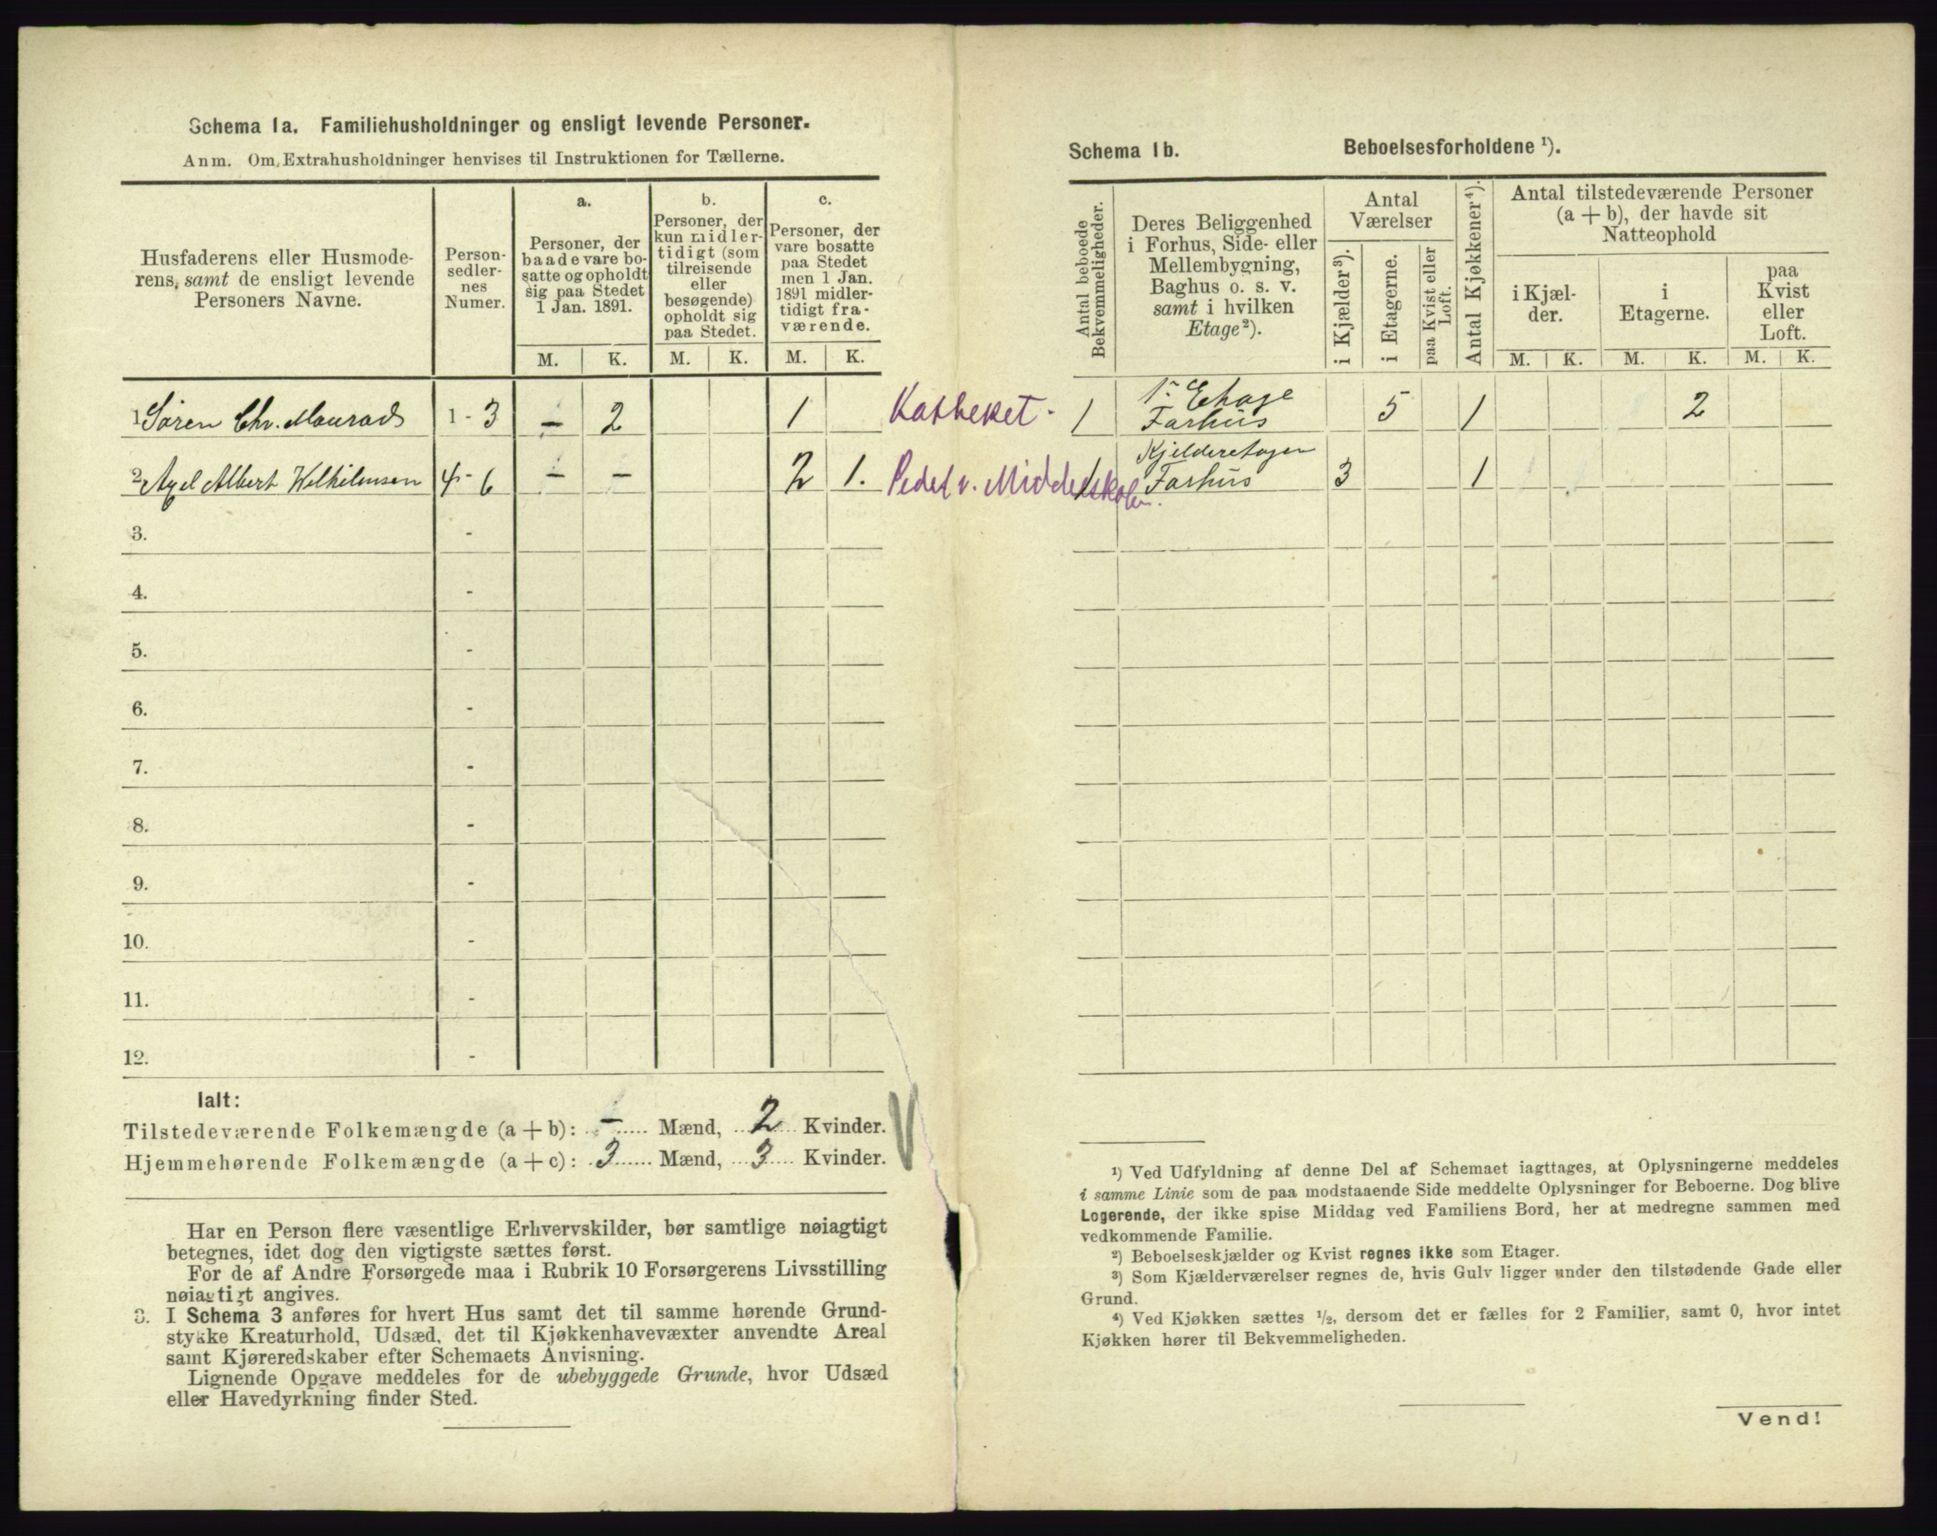 Schema 1a. Familiehusholdninger og ensligt levende Personer.
Anm. Om Extrahusholdninger henvises til Instruktionen for Tællerne.
Husfaderens eller Husmode-
rens, samt de ensligt levende
Personers Navne.
Person-
sedler-
nes
Numer.
a.
Personer, der
baade vare bo-
satte og opholdt
sig paa Stedet
1 Jan. 1891.
b.
Personer, der
kun midler-
tidigt (som
tilreisende
eller
besøgende)
opholdt sig
paa Stedet.
c.
Personer, der
vare bosatte
paa Stedet
men 1 Jan.
1891 midler-
tidigt fra-
værende.
M. K. M. K. M. K.
1 Søren Chr. 1 - 3 – 2 1
2 Axel Albert Wilhilmsen 4 - 6 – – 2 1.
3. -
4. -
5. -
6. -
7. -
8. -
9. -
10. -
11. -
12. -
Ialt:
Tilstedeværende Folkemængde (a + b): – Mænd, 2 Kvinder.
Hjemmehørende Folkemængde (a + c): 3 Mænd, 3 Kvinder.
Har en Person flere væsentlige Erhvervskilder, bør samtlige nøiagtigt
betegnes, idet dog den vigtigste sættes først.
For de af Andre Forsørgede maa i Rubrik 10 Forsørgerens Livsstilling
nøiagtigt angives.
3. I Schema 3 anføres for hvert Hus samt det til samme hørende Grund-
stykke Kreaturhold, Udsæd, det til Kjøkkenhavevæxter anvendte Areal
samt Kjøreredskaber efter Schemaets Anvisning.
Lignende Opgave meddeles for de ubebyggede Grunde, hvor Udsæd
eller Havedyrkning finder Sted.
Schema 1b. Beboelsesforholdene ¹).
Antal beboede
Bekvemmeligheder.
Deres Beliggenhed
i Forhus, Side- eller
Mellembygning,
Baghus o. s. v.
samt i hvilken
Etage²).
Antal
Værelser
i Kjælder³).
i Etagerne.
paa Kvist eller
Loft.
Antal Kjøkkener⁴).
Antal tilstedeværende Personer
(a + b), der havde sit
Natteophold
i Kjæl-
der.
i
Etagerne.
paa
Kvist
eller
Loft.
M. K. M. K. M. K.
Katheket. 1 1ste Etage
Forhus 5 1 2
Pedel v. Middelskolen. 1 Kjelderetagen
Forhus 3 1
¹) Ved Udfyldning af denne Del af Schemaet iagttages, at Oplysningerne meddeles
i samme Linie som de paa modstaaende Side meddelte Oplysninger for Beboerne. Dog blive
Logerende, der ikke spise Middag ved Familiens Bord, her at medregne sammen med
vedkommende Familie.
²) Beboelseskjælder og Kvist regnes ikke som Etager.
³) Som Kjælderværelser regnes de, hvis Gulv ligger under den tilstødende Gade eller
Grund.
⁴) Ved Kjøkken sættes ½, dersom det er fælles for 2 Familier, samt 0, hvor intet
Kjøkken hører til Bekvemmeligheden.
Vend!